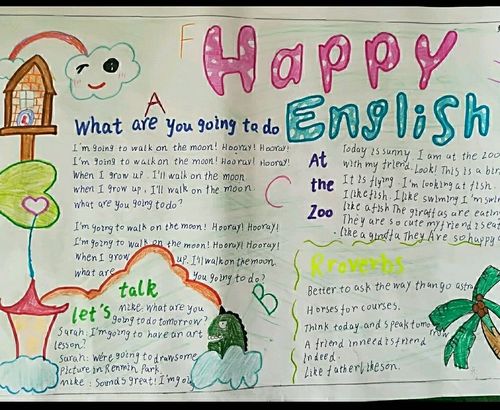 F Happy
English
A
What are you going to do
I'm going to walk on the moon! Hooray! Hooray!
I'm going to walk on the moon! Hooray! Hooray!
When I grow up. I'll walk on the moon
when I grow up. I'll walk on the moon.
what are you going to do?
I'm going to walk on the moon! Hooray! Hooray!
I'm going to walk on the moon! Hooray! Hooray!
When I grow up. I'll walk on the moon.
what are you going to do?
C
B
At
the
Zoo
Today is sunny. I am at the zoo
with my friend. Look! This is a bir
It is flying. I'm looking at fish.
I like fish. I like swiming I'm swim
like a fish The giraffes are eatin
They are so cute my friend is eat
like a giraffe They Are so happy
let's talk
Mike: what are you
going to do tomorrow?
Sarah: I'm going to have an art
lesson?
Sarah: We're going to draw some
Picture in Renmin Park.
Mike: Sounds great! I'm go
Rroverbs
Better to ask the way than go astr
Horses for courses.
Think today and speak tomorrow
A friend in need is friend
indeed.
Like father like son.